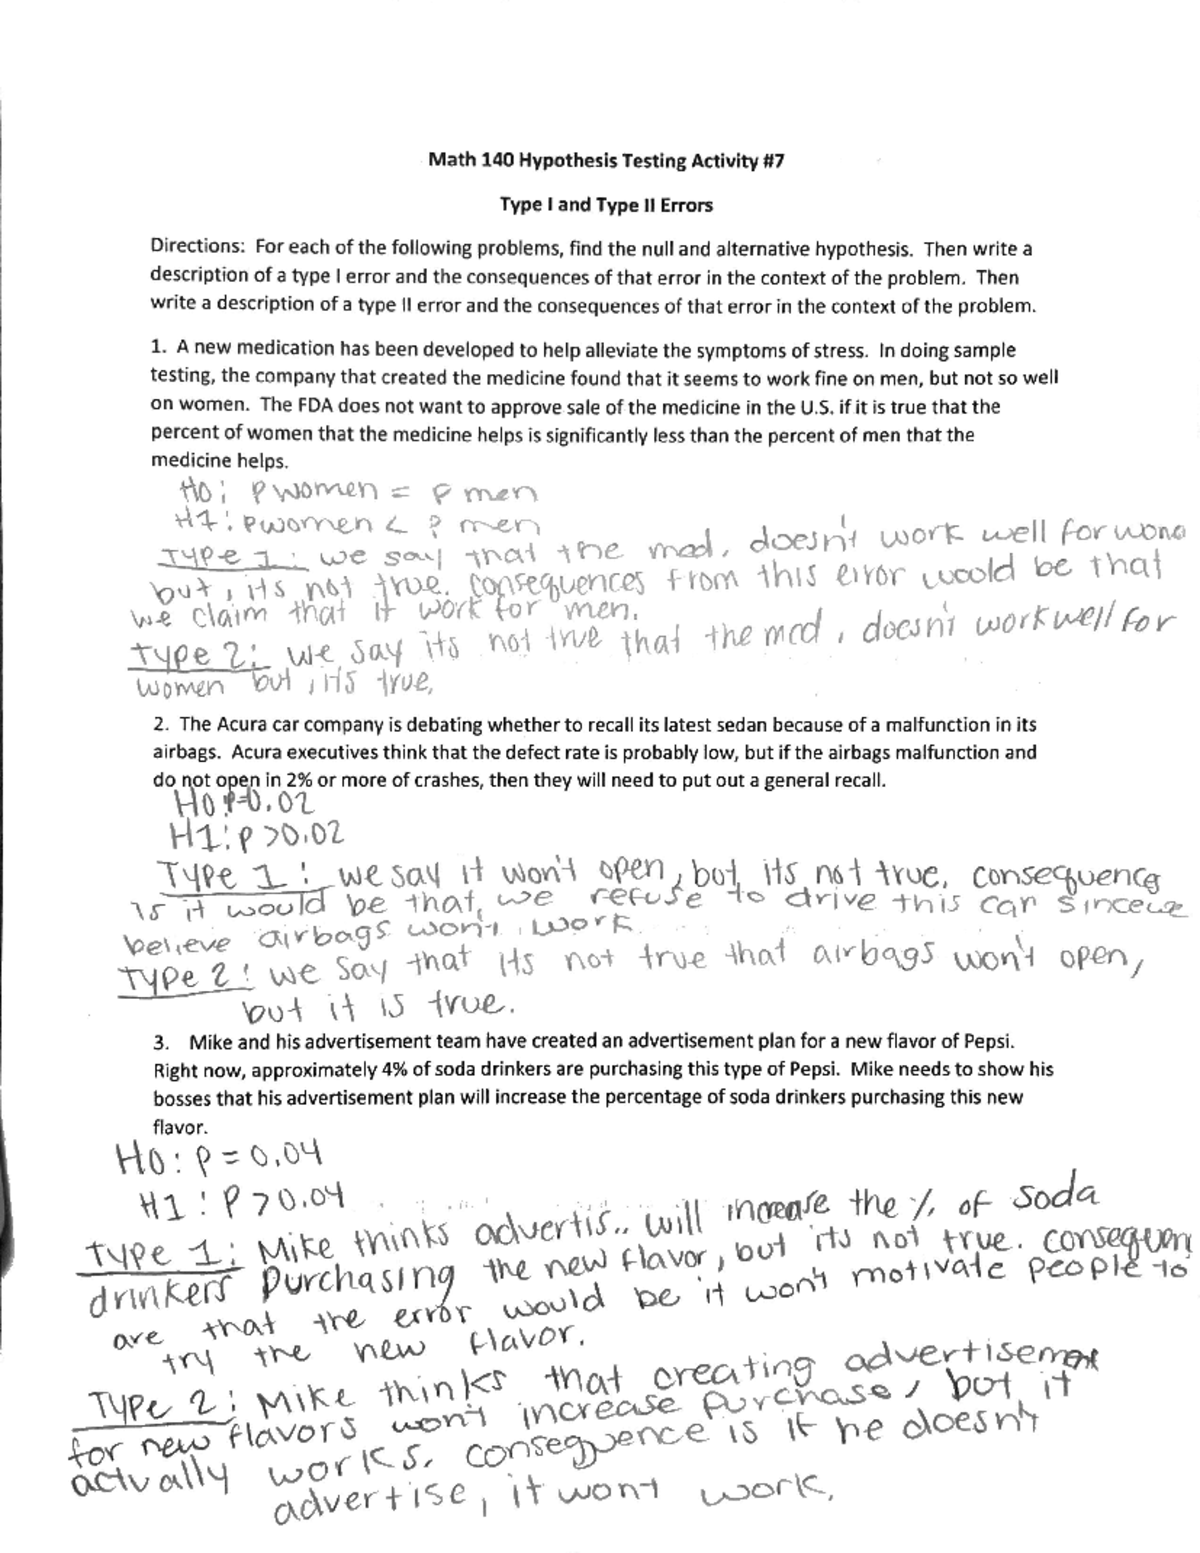 Math 140 Hypothesis Testing Activity #7
Type I and Type II Errors
Directions: For each of the following problems, find the null and alternative hypothesis. Then write a
description of a type I error and the consequences of that error in the context of the problem. Then
write a description of a type II error and the consequences of that error in the context of the problem.
1. A new medication has been developed to help alleviate the symptoms of stress. In doing sample
testing, the company that created the medicine found that it seems to work fine on men, but not so well
on women. The FDA does not want to approve sale of the medicine in the U.S. if it is true that the
percent of women that the medicine helps is significantly less than the percent of men that the
medicine helps.
H0: P women = P men
H1: P women < P men
Type 1: we say that the med, doesn't work well for
but, its not true. consequences from this error would be that
we claim that it work for men.
Type 2: we say its not true that the med, doesn't work well for
women but, its true.
2. The Acura car company is debating whether to recall its latest sedan because of a malfunction in its
airbags. Acura executives think that the defect rate is probably low, but if the airbags malfunction and
do not open in 2% or more of crashes, then they will need to put out a general recall.
H0: P=0.02
H1: P >0.02
Type 1: we say it won't open, but its not true. consequence
is it would be that, we refuse to drive this car since we
believe airbags won't work.
Type 2: we say that its not true that airbags won't open,
but it is true.
3. Mike and his advertisement team have created an advertisement plan for a new flavor of Pepsi.
Right now, approximately 4% of soda drinkers are purchasing this type of Pepsi. Mike needs to show his
bosses that his advertisement plan will increase the percentage of soda drinkers purchasing this new
flavor.
H0: P = 0.04
H1: P >0.04
Type 1: Mike thinks advertis.. will increase the % of soda
drinkers purchasing the new flavor, but its not true. consequen
are that the error would be it won't motivate people to
try the new flavor.
Type 2: Mike thinks that creating advertisement
for new flavors won't increase purchase, but it
actually works. consequence is if he doesn't
advertise, it wont work.